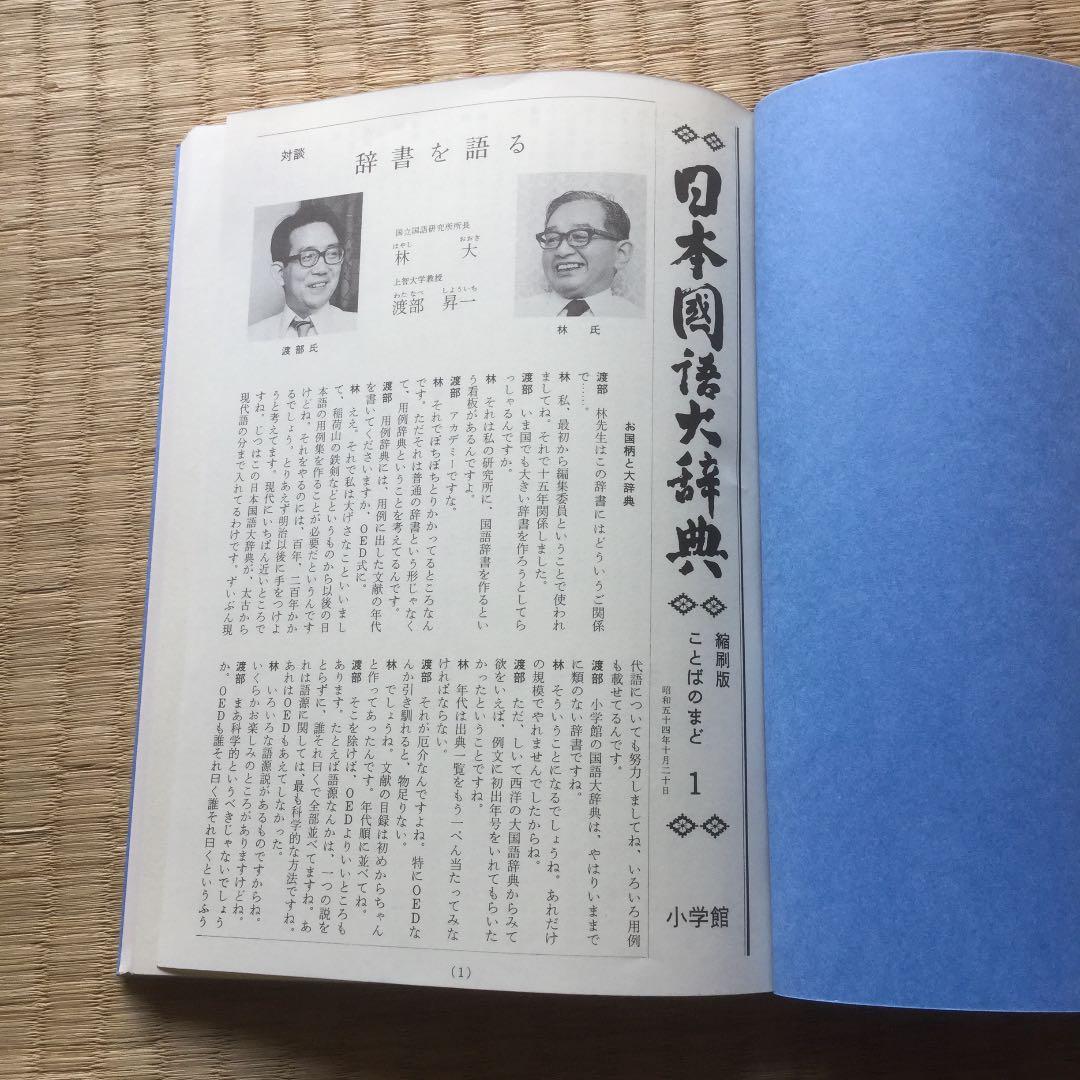 日本國語大辞典
縮刷版
ことばのまど 1
昭和五十四年十月二十日
小学館
対談
辞書を語る
国立国語研究所所長
はやし おおき
林 大
上智大学教授
わたなべ しよういち
渡部 昇一
林 氏
渡部氏
お国柄と大辞典
渡部 林先生はこの辞書にはどういうご関係
で……。
林 私、最初から編集委員ということで使われ
ましてね。それで十五年関係しました。
渡部 いま国でも大きい辞書を作ろうとしてら
っしゃるんですか。
林 それは私の研究所に、国語辞書を作るとい
う看板があるんですよ。
渡部 アカデミーですな。
林 それでぼちぼちとりかかってるところなん
です。ただそれは普通の辞書という形じゃなく
て、用例辞典ということを考えてるんです。
渡部 用例辞典には、用例に出した文献の年代
を書いてくださいますか、OED式に。
林 ええ。それで私は大げさなこといいまし
て、稲荷山の鉄剣などというものから以後の日
本語の用例集を作ることが必要だというんです
けどね。それをやるのには、百年、二百年かか
るでしょう。とりあえず明治以後に手をつけよ
うと考えてます。現代にいちばん近いところで
すね。じつはこの日本国語大辞典が、太古から
現代語の分まで入れてるわけです。ずいぶん現
代語についても努力しましてね、いろいろ用例
も載せてるんです。
渡部 小学館の国語大辞典は、やはりいままで
に類のない辞書ですね。
林 そういうことになるでしょうね。あれだけ
の規模でやれませんでしたからね。
渡部 ただ、しいて西洋の大国語辞典からみて
欲をいえば、例文に初出年号をいれてもらいた
かったということですね。
林 年代は出典一覧をもう一ぺん当たってみな
ければならない。
渡部 それが厄介なんですよね。特にOEDな
んか引き馴れると、物足りない。
林 でしょうね。文献の目録は初めからちゃん
と作ってあったんです。年代順に並べてね。
渡部 そこを除けば、OEDよりいいところも
あります。たとえば語源なんかは、一つの説を
とらずに、誰それ曰くで全部並べてますね。あ
れは語源に関しては、最も科学的な方法ですね。
あれはOEDもあえてしなかった。
林 いろいろな語源説があるものですからね。
いくらかお楽しみのところがありますけどね。
渡部 まあ科学的というべきじゃないでしょう
か。OEDも誰それ曰く誰それ曰くというふう
(1)